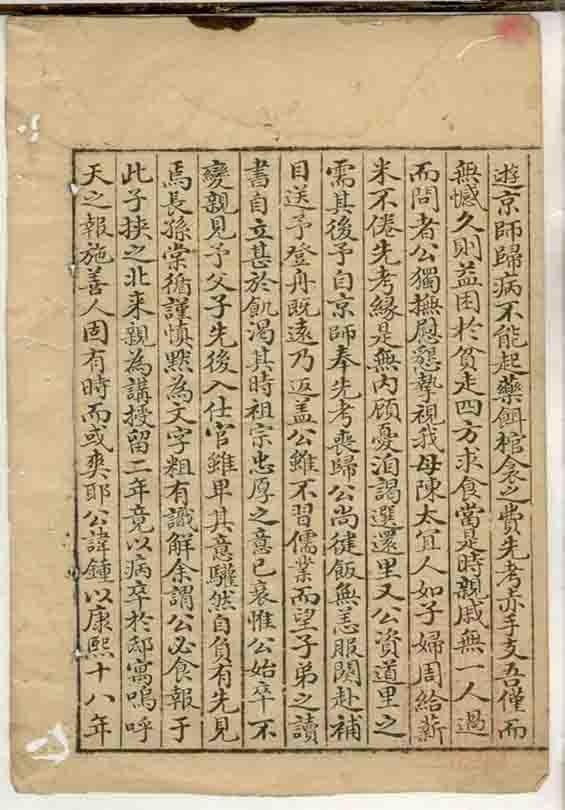 遊京師歸病不能起藥餌棺衾之費先考赤手支吾僅而
無憾久則益困於貧走四方求食當是時親戚無一人過
而問者公獨撫慰懇摯視我母陳太宜人如子婦周給薪
米不倦先考緣是無內顧憂洎謁選還里又公資道里之
需其後予自京師奉先考喪歸公尚健飯無恙服闋赴補
目送予登舟既遠乃返盖公雖不習儒業而望子弟之讀
書自立甚於飢渴其時祖宗忠厚之意已衰惟公始卒不
變親見予父子先後入仕官雖卑其意驩然自負有先見
焉長孫棠循謹慎默為文字粗有識解余謂公必食報于
此子挾之北来親為講授留二年竟以病卒於邸寓嗚呼
天之報施善人固有時而或爽耶公諱鍾以康熙十八年